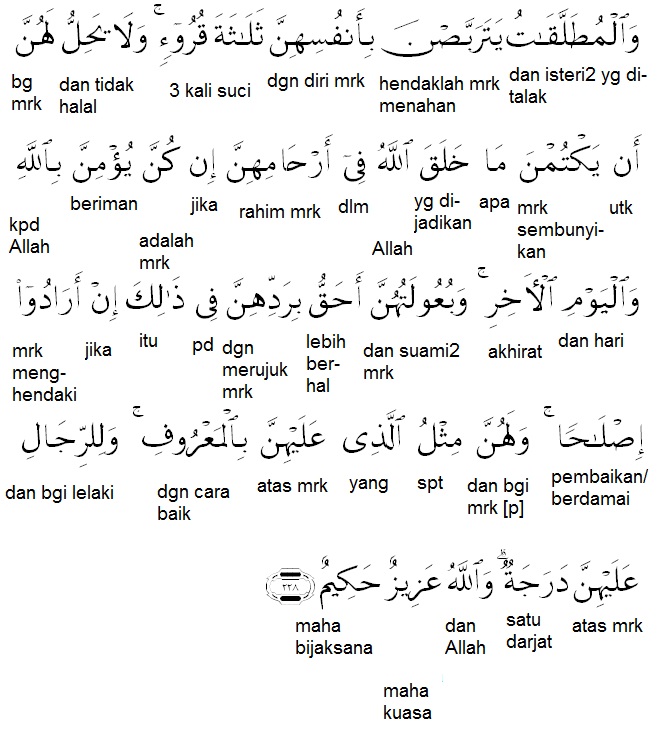 وَٱلْمُطَلَّقَـٰتُ يَتَرَبَّصْنَ بِأَنفُسِهِنَّ ثَلَـٰثَةَ قُرُوٓءٍۚ وَلَا يَحِلُّ لَهُنَّ
dan isteri2 yg di-talak
hendaklah mrk menahan
dgn diri mrk
3 kali suci
dan tidak halal
bg mrk
أَن يَكْتُمْنَ مَا خَلَقَ ٱللَّهُ فِىٓ أَرْحَامِهِنَّ إِن كُنَّ يُؤْمِنَّ بِٱللَّهِ
utk
mrk sembunyi-kan
apa
yg di-jadikan
Allah
dlm
rahim mrk
jika
adalah mrk
beriman
kpd Allah
وَٱلْيَوْمِ ٱلْـَٔاخِرِۚ وَبُعُولَتُهُنَّ أَحَقُّ بِرَدِّهِنَّ فِى ذَٰلِكَ إِنْ أَرَادُوٓا۟
dan hari
akhirat
dan suami2 mrk
lebih ber-hal
dgn merujuk mrk
pd
itu
jika
mrk meng-hendaki
إِصْلَـٰحًاۚ وَلَهُنَّ مِثْلُ ٱلَّذِى عَلَيْهِنَّ بِٱلْمَعْرُوفِۚ وَلِلرِّجَالِ
pembaikan/ berdamai
dan bgi mrk [p]
spt
yang
atas mrk
dgn cara baik
dan bgi lelaki
عَلَيْهِنَّ دَرَجَةٌۗ وَٱللَّهُ عَزِيزٌ حَكِيمٌ ٢٢٨
atas mrk
satu darjat
dan Allah
maha kuasa
maha bijaksana